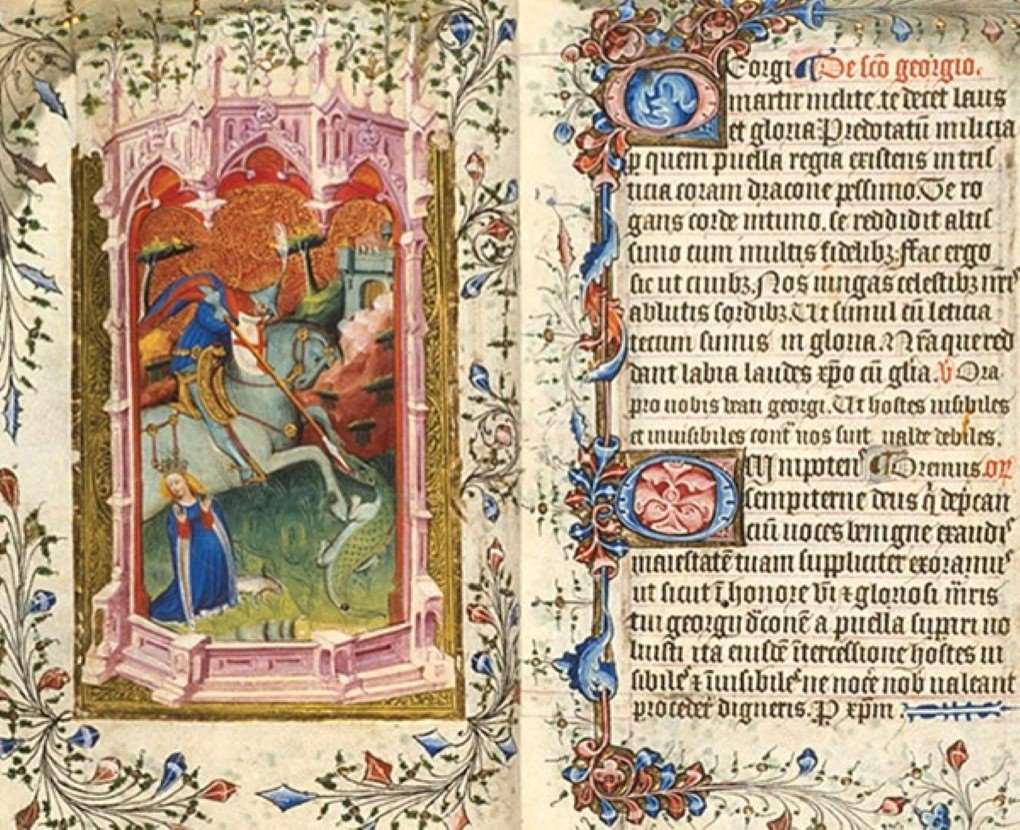 Georgi De sc̄o georgio.
martir inclite. te decet laus
et gloria Predotatū milicia
ꝑ quem puella regia existens in tris
ticia coram dracone pessimo. Te ro
gans corde intimo. se reddidit altis
simo cum multis fidelibꝫ. ffac ergo
sic ut ciuibꝫ. Nos iungas celestibꝫ nr̄is
ablutis sordibꝫ. Ut simul cū leticia
tecum simus in gloria. Nr̄a que red
dant labia laudes xp̄o cū gl̄ia. V Ora
pro nobis beati georgi. Ut hostes uisibiles
et inuisibiles cont nos sint ualde debiles.
Omnipotens Oremus. or
sempiterne deus q̄ dep̄can
ciū uoces benigne exaudis
maiestatē tuam suppliciter exoramus
ut sicut ī honore bt̄i ⁊ gloriosi m̄ris
tui georgij d̄conē a puella suꝑari uo
luisti ita eiusdē ītercessione hostes ui
sibiles ⁊ īuisibiles ne nocē nob̄ ualeant
procedē digneris. P xp̄m.